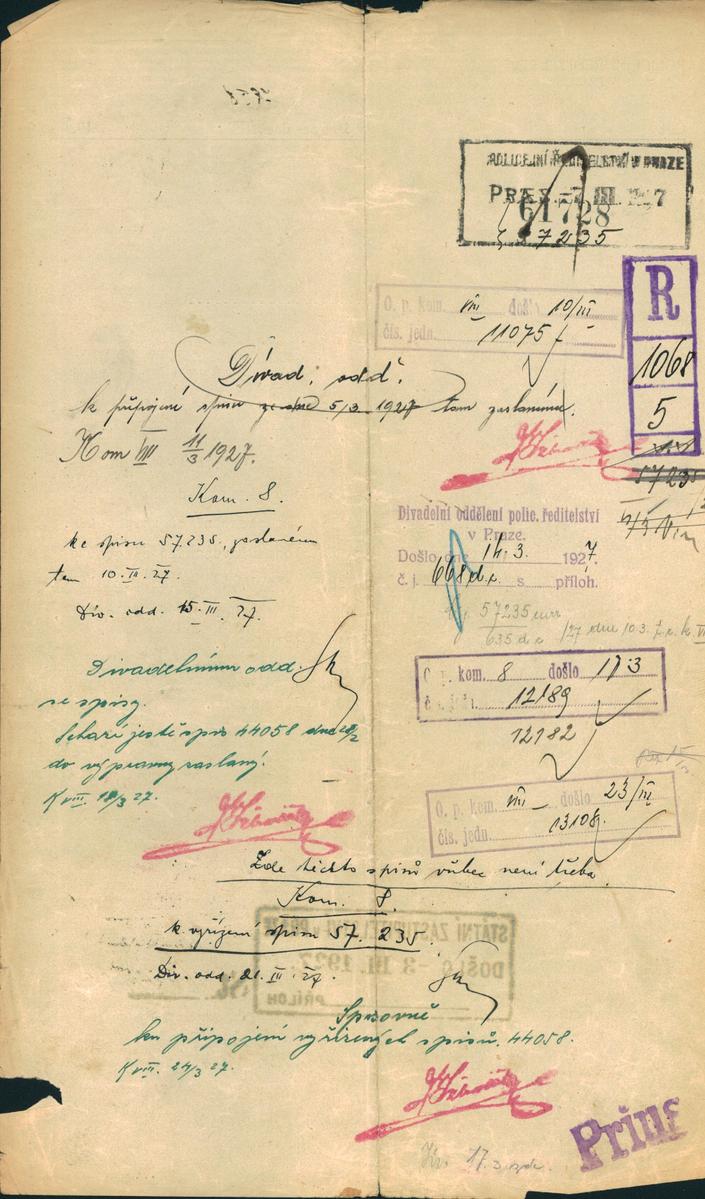 POLICEJNÍ ŘEDITELSTVÍ V PRAZE
PRAES. -7. III. 1927
61728
57235
R
1068
5
O. p. kom. VIII došlo 10/III
čís. jedn. 11075
Divad. odd.
k připojení spisu ze dne 5/3 1927 tam zaslanému.
Kom VIII 11/3 1927.
57235
Kom. 8.
ke spisu 57.235, zaslaném
tam 10. III. 27.
Div. odd. 15. III. 27.
Divadelní oddělení polic. ředitelství
v Praze.
Došlo dne 14. 3. 1927
č. j. 668 d.r. s příloh.
57235
635 d.r. /27 dne 10.3. k VIII
Divadelnímu odd.
se spisy.
Schází ještě spis 44058 dne
do výpravny zaslaný.
K VIII. 18/3 27.
O. p. kom. 8 došlo 17 3
12189
12182
O. p. kom. VIII došlo 23/III
čís. jedn. 13108.
Zde těchto spisů vůbec není třeba.
Kom. 8.
k vyřízení spisu 57.235.
Div. odd. 21. III. 27.
STÁTNÍ ZASTUPITEL
DOŠLO -3. III. 1927
PŘÍLOH
Spisovně
ku připojení vyřízených spisů 44058.
K VIII. 24/3 27.
17.3.